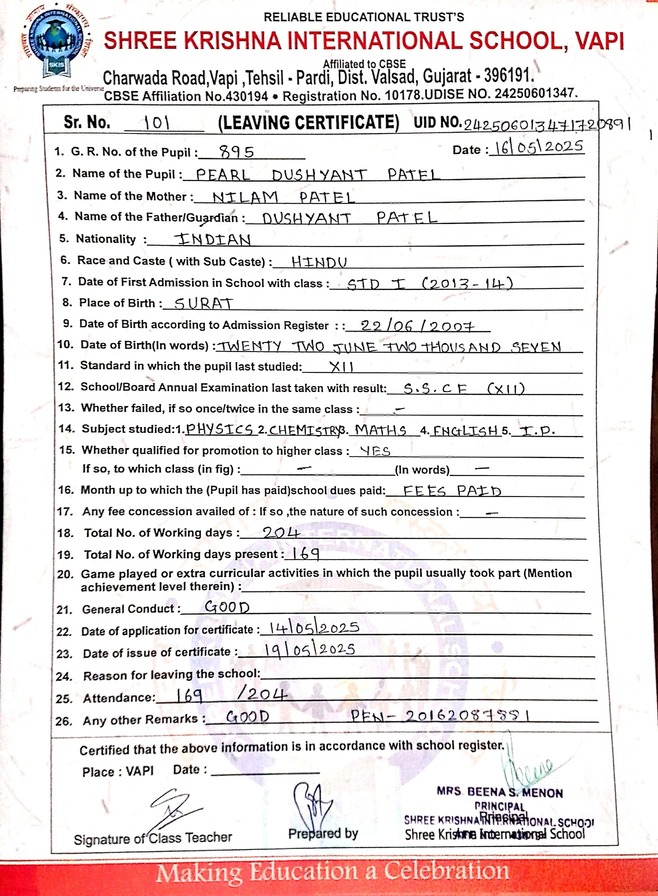 RELIABLE EDUCATIONAL TRUST'S
SHREE KRISHNA INTERNATIONAL SCHOOL, VAPI
Affiliated to CBSE
Charwada Road,Vapi ,Tehsil - Pardi, Dist. Valsad, Gujarat - 396191.
CBSE Affiliation No.430194 • Registration No. 10178.UDISE NO. 24250601347.
SKIS
Preparing Students for the Universe
Sr. No. 101 (LEAVING CERTIFICATE) UID NO.242506013471720891
1. G. R. No. of the Pupil : 895 Date : 16/05/2025
2. Name of the Pupil : PEARL DUSHYANT PATEL
3. Name of the Mother : NILAM PATEL
4. Name of the Father/Guardian : DUSHYANT PATEL
5. Nationality : INDIAN
6. Race and Caste ( with Sub Caste) : HINDU
7. Date of First Admission in School with class : STD I (2013-14)
8. Place of Birth : SURAT
9. Date of Birth according to Admission Register : : 22/06/2007
10. Date of Birth(In words) : TWENTY TWO JUNE TWO THOUSAND SEVEN
11. Standard in which the pupil last studied: XII
12. School/Board Annual Examination last taken with result: S.S.C.E (XII)
13. Whether failed, if so once/twice in the same class : –
14. Subject studied:1.PHYSICS 2.CHEMISTRY3. MATHS 4.ENGLISH 5. I.P.
15. Whether qualified for promotion to higher class : YES
If so, to which class (in fig) : – (In words) –
16. Month up to which the (Pupil has paid)school dues paid: FEES PAID
17. Any fee concession availed of : If so ,the nature of such concession : –
18. Total No. of Working days : 204
19. Total No. of Working days present : 169
20. Game played or extra curricular activities in which the pupil usually took part (Mention
achievement level therein) :
21. General Conduct : GOOD
22. Date of application for certificate : 14/05/2025
23. Date of issue of certificate : 19/05/2025
24. Reason for leaving the school:
25. Attendance: 169 /204
26. Any other Remarks : GOOD PEN- 20162087891
Certified that the above information is in accordance with school register.
Place : VAPI Date :
Beena
MRS. BEENA S. MENON
PRINCIPAL
Principal
SHREE KRISHNA INTERNATIONAL SCHOOL
Signature of Class Teacher Prepared by Shree Krishna International School
Making Education a Celebration